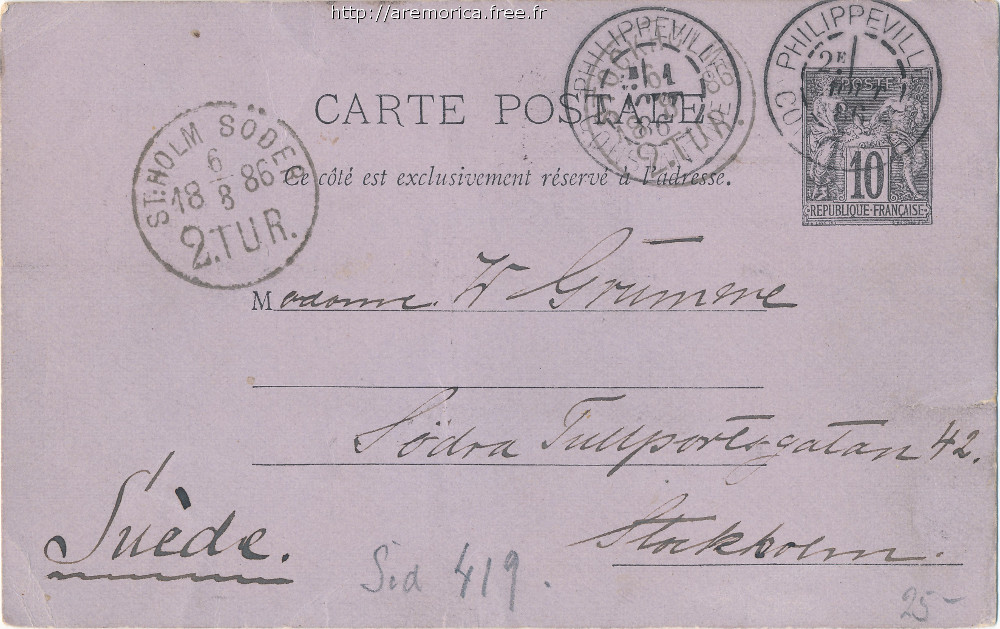 http://aremorica.free.fr
PHILIPPEVILLE
PHILIPPEVILLE
2E
1
86
2.TUR.
POSTE
10
RÉPUBLIQUE·FRANÇAISE
CARTE POSTALE
Ce côté est exclusivement réservé à l'adresse.
ST:HOLM SÖDER
6
18 8 86
2.TUR.
Madame W Grumme
Södra Tullportsgatan 42.
Stockholm.
Suède.
419.
25-